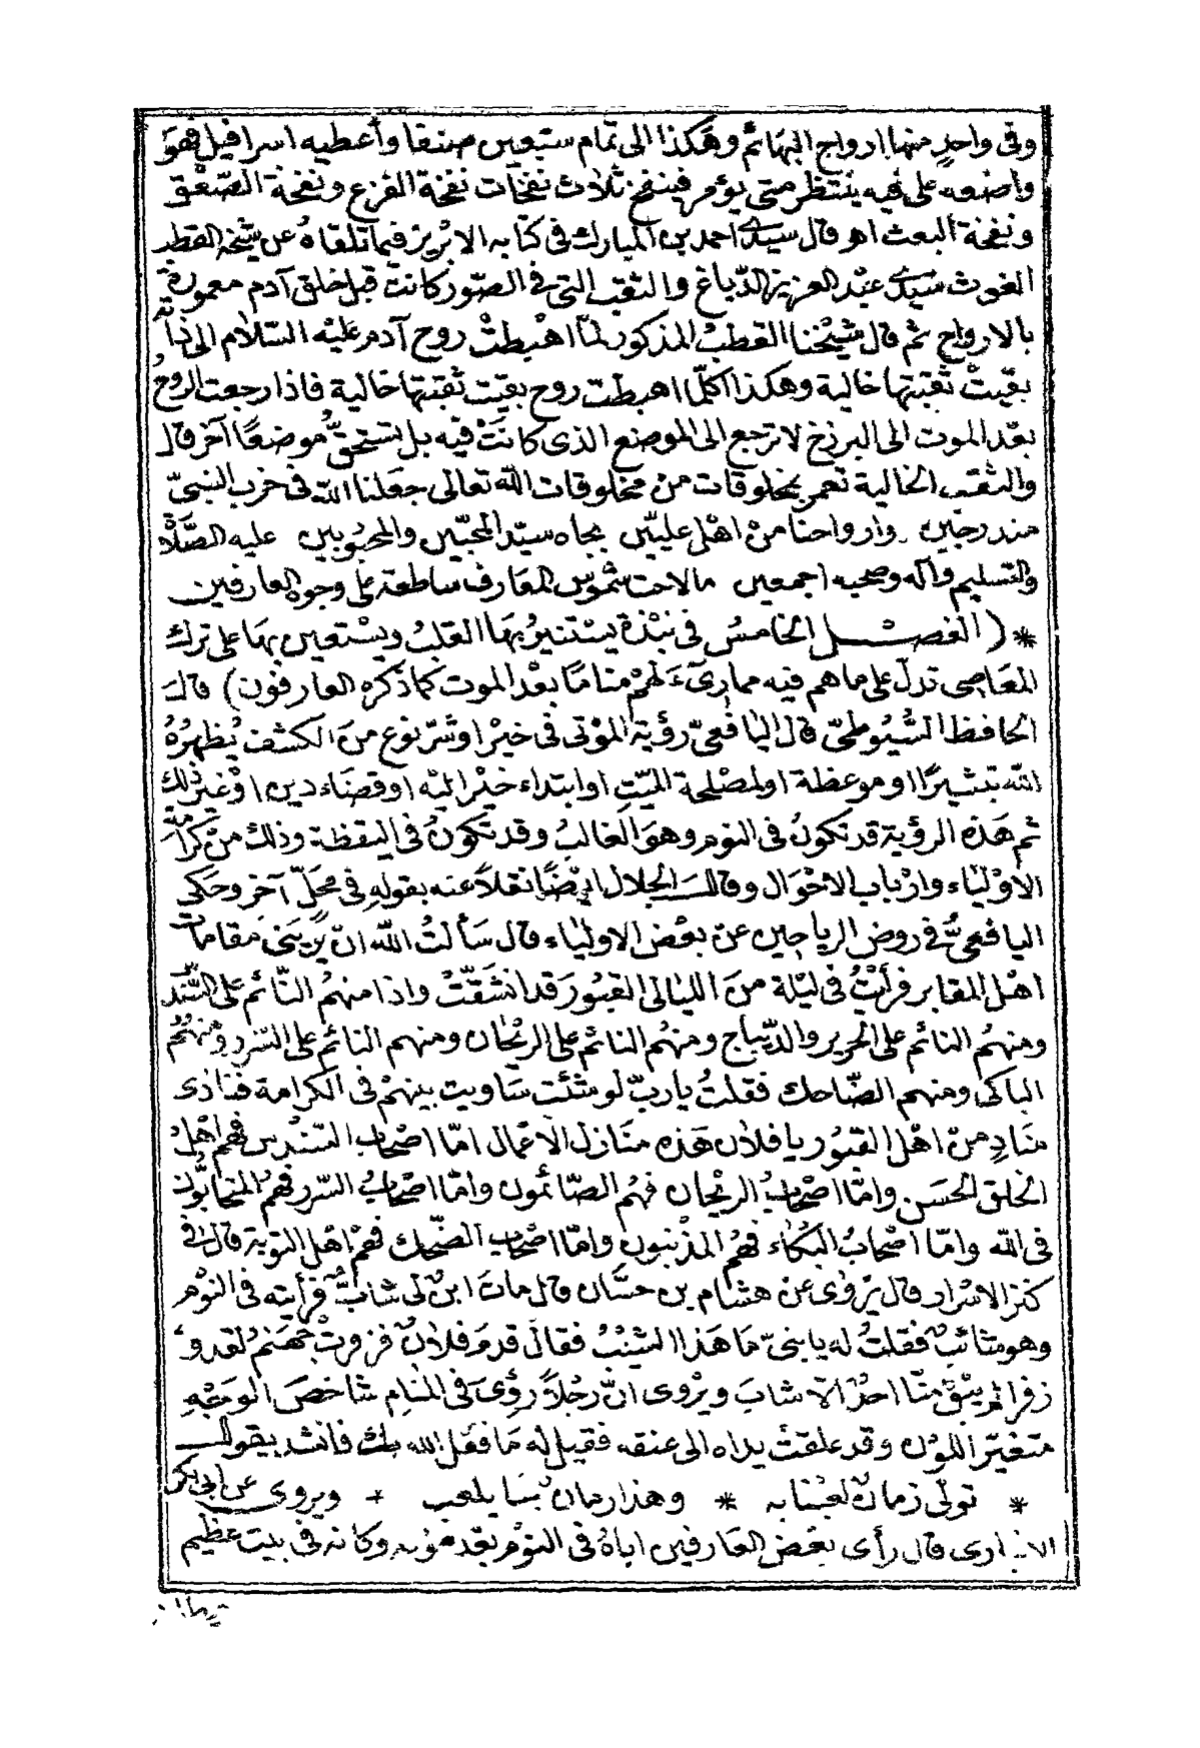 وفى واحدٍ منها ارواح البهائم وهكذا الى تمام ستبعين صنفا وأعطيه اسرافيل فهو
واضعه على فيه ينتظر متى يؤمر فينفخ ثلاث نفخات نفخة الفزع ونفخة الصّعْق
ونفخة البعث اهـ قال سيدى احمد بن المبارك فى كتابه الابْريز فيما تلقاهُ عن شيخه القطب
الغوث سيدى عبْد العزيز الدّباغ والثقب التى فى الصّور كانت قبل خلق آدم معمورة
بالارواح ثم قال شيْخنا القطبْ المذكور لمّا اهْبطتْ روح آدم عليْه السّلام الى ذاته
بقيتْ ثقبتها خالية وهكذا كلّما اهبطت روح بقيت ثقبتها خالية فاذا رجعت الروحُ
بعْد الموت الى البرزخ لا ترجع الى الموضع الذى كانَتْ فيه بل تستحقّ موضعًا آخر قال
والثقب الخالية تعمر بمخلوقات من مخلوقات الله تعالى جعَلنا الله فى حزب النبىّ
مندرجين وارواحنا منْ اهْل عليّين بجاه سيّد المحبّين والمحبوبين عليه الصَّلاة
والتسليم وآله وصحبه اجمعين ما لاحت شموس المعارف ساطعة على وجوه العارفين
* ( الفصــل الخامسُ فى نبْذة يستنيرُ بهَا القلبُ ويسْتعين بهَا على ترك
المعَاصى تدلّ على ما هم فيه مما رىءَ لهمْ منامًا بعْد الموت كما ذكره العارفون ) قال
الحافظ السُّيوطىّ قال اليافعىّ رؤية الموْتى فى خيْر اوشرّ نوع منَ الكشف يُظهرُهُ
الله تبْشيرًا او موعظة او لمصْلحة الميّتِ او ابتداء خيْر اليْه او قضَاء دين اوْ غيْر ذلك
ثم هَذه الرؤية قد تكونُ فى النوم وهوَ الغالبُ وقد تكونُ فى اليقظة وذلك منْ كرامة
الاوْليَاء وارْباب الاحْوَال وقال الجلال ايْضًا نقلاً عنه بقولهِ فى محَلّ آخر وحكى
اليافعىُّ فى روض الرياحين عن بعْض الاولياء قال سَألتُ الله انْ يُرينى مَقامات
اهْل المقابر فرأيْتُ فى ليْلة منَ الليَالى القبُور قد انشَقّتْ واذا منهمُ النّائم على السُّندس
ومنهُم النائم على الحرير والدّيباج ومنهُم النائم على الريْحان ومنهم النائم على السّرر ومنهُمُ
الباكى ومنهم الضّاحك فقلتُ ياربّ لو شئت سَاويت بينهمْ فى الكرامة فنادَى
منادٍ منْ اهْل القبُور يا فلان هَذه منَازل الاعْمال امّا اصْحابُ السّنْدس فهم اهْلُ
الخلق الحسَن وامّا اصْحابُ الريْحان فهُم الصّائمون وامّا اصْحابُ السّرر فهُمُ المتحابُّون
فى الله وامّا اصْحابُ البكاء فهُم المذْنبون وامّا اصْحاب الضّحك فهُم اهْل التوبة قال فى
كنز الاسْرار قال يرْوى عنْ هشام بن حسّان قال ماتَ ابنٌ لى شابٌّ فرأيته فى النوْم
وهو شائبٌ فقلتُ له يا بنىّ مَا هَذا الشيْبُ فقال قدمَ فلانٌ فزفرتْ جهنمُ لقدومه
زفرة لم يبْقَ منّا احدٌ الاّ شابَ ويرْوى انّ رجُلاً رؤىَ فى المنام شاخصَ الوجْهِ
متغيّر اللوْن وقد علقتْ يداه الى عنقه فقيل له مَا فعَل الله بك فانشد يقول
* تولّى زمانٌ لعبْنا به * وهذا زمانٌ بنَا يلعب * ويروى عن ابى بكر
الانبارى قال رأى بعْض العارفين اباهُ فى النوْم بعْد موْته وكانه فى بيت عظيم